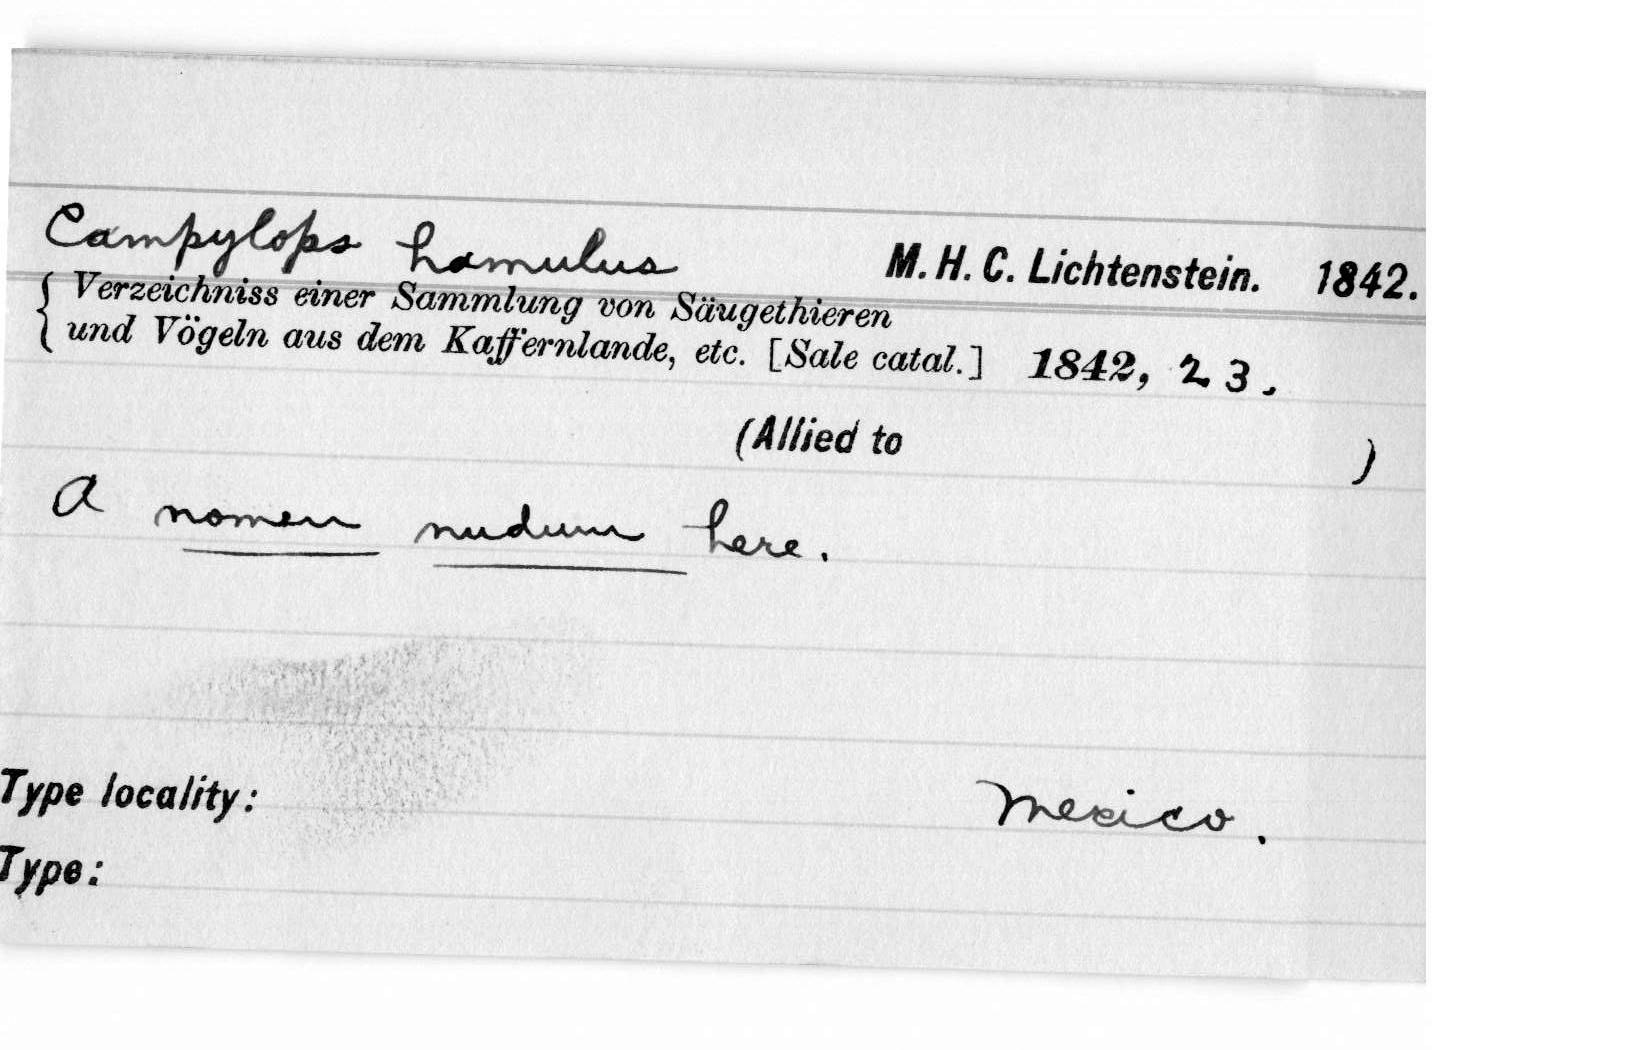 Campylops hamulus M. H. C. Lichtenstein. 1842.
Verzeichniss einer Sammlung von Säugethieren
und Vögeln aus dem Kaffernlande, etc. [Sale catal.] 1842, 23.
(Allied to )
A nomen nudum here.
Type locality: Mexico.
Type: